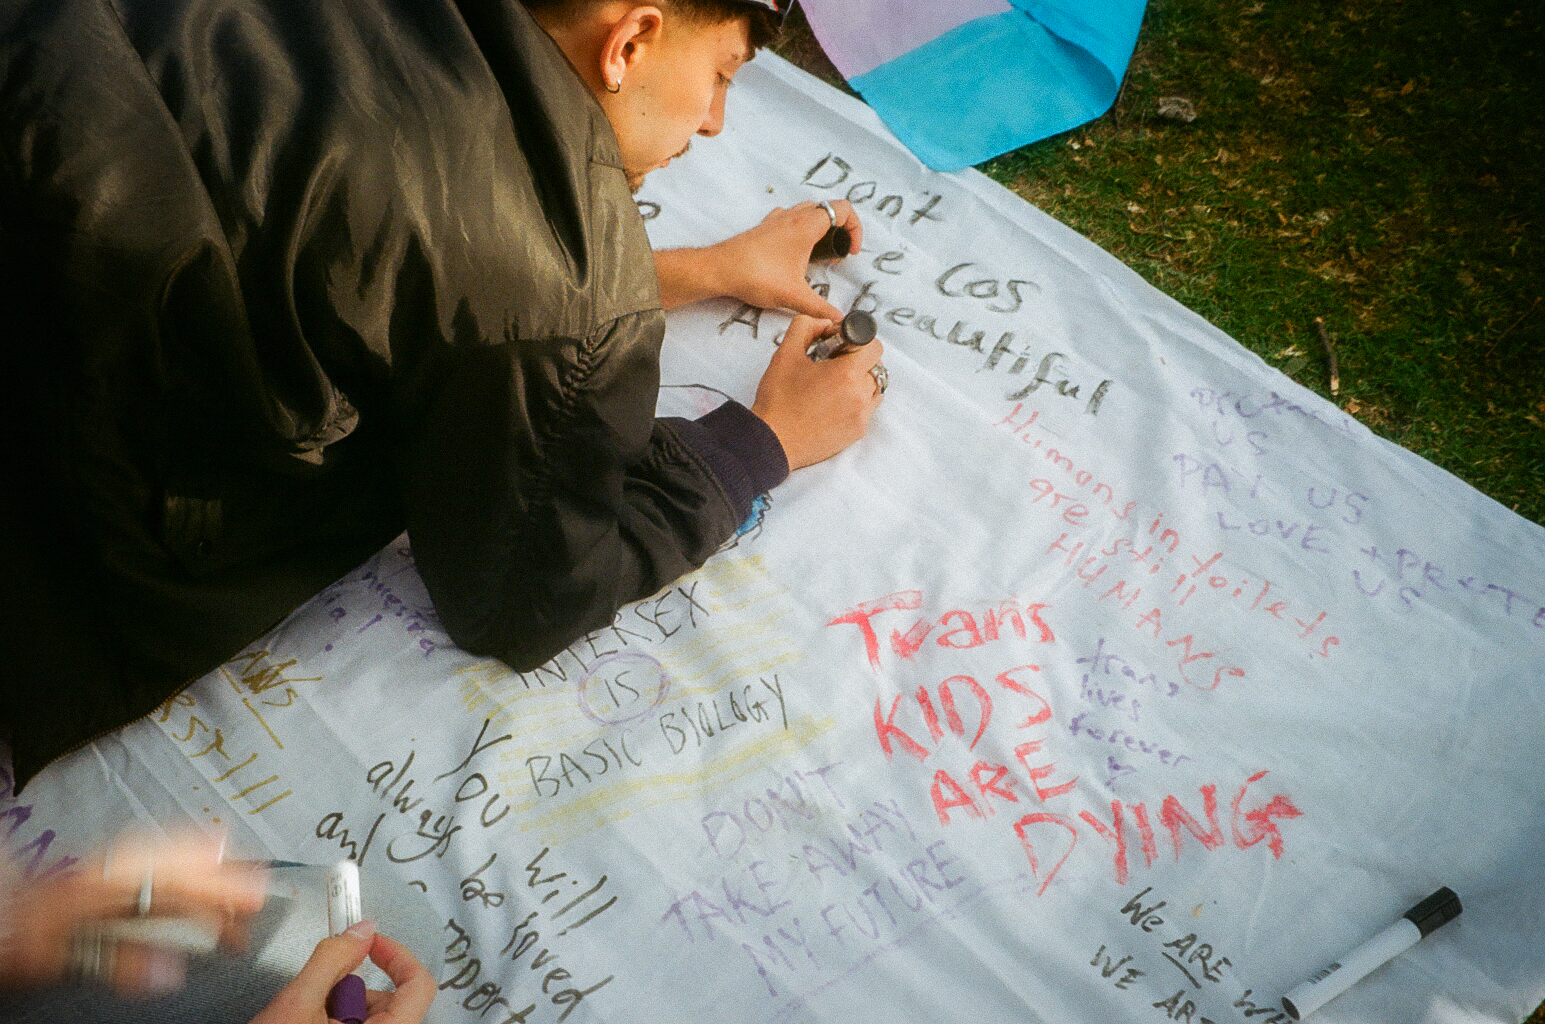 Dont
-e Cos
beautiful
A
US
PAY US
LOVE + PROTECT
US
Humans in toilets
are still
HUMANS
Trans
KIDS
ARE
DYING
trans
lives
forever
INTERSEX
IS
BASIC BIOLOGY
You will
always be loved
and
DON'T
TAKE AWAY
MY FUTURE
We ARE
WE AR